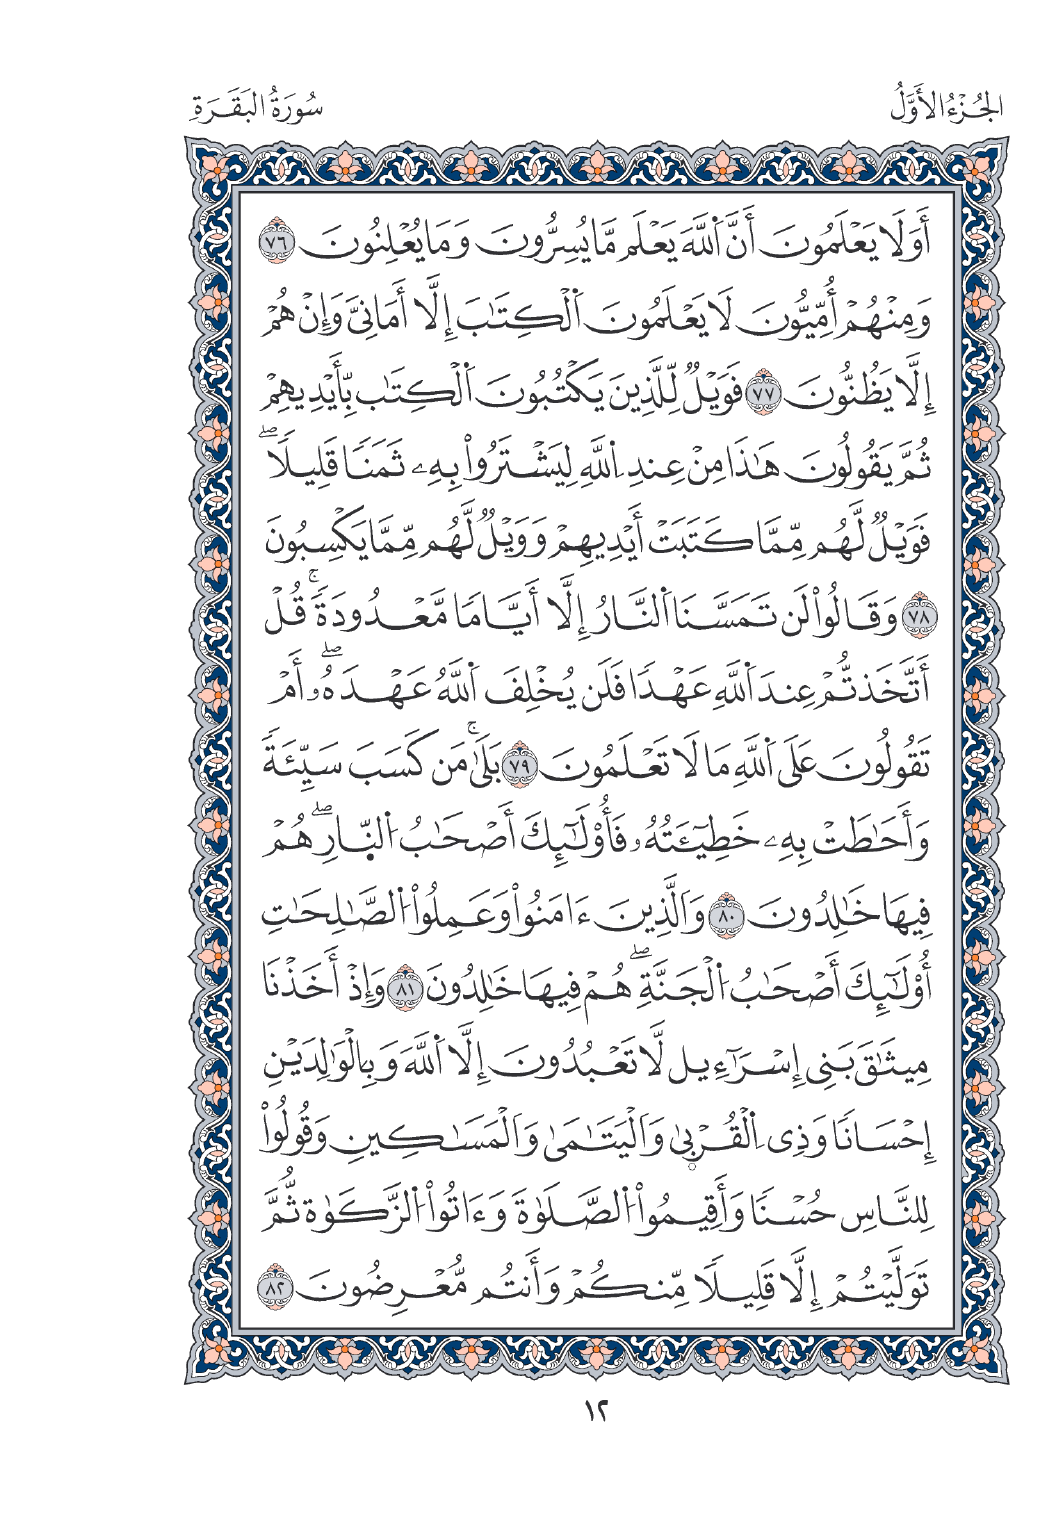 الجُزْءُ الأَوَّلُ
سُورَةُ البَقَرَةِ
أَوَلَا يَعْلَمُونَ أَنَّ ٱللَّهَ يَعْلَم مَّا يُسِرُّونَ وَمَا يُعْلِنُونَ ٧٦
وَمِنْهُمْ أُمِّيُّونَ لَا يَعْلَمُونَ ٱلْكِتَٰبَ إِلَّا أَمَانِىَّ وَإِنْ هُمْ
إِلَّا يَظُنُّونَ ٧٧ فَوَيْلٌ لِّلَّذِينَ يَكْتُبُونَ ٱلْكِتَٰب بِّأَيْدِيهِمْ
ثُمَّ يَقُولُونَ هَٰذَا مِنْ عِندِ ٱللَّهِ لِيَشْتَرُوا۟ بِهِۦ ثَمَنًا قَلِيلًاۖ
فَوَيْلٌ لَّهُم مِّمَّا كَتَبَتْ أَيْدِيهِمْ وَوَيْلٌ لَّهُم مِّمَّا يَكْسِبُونَ
٧٨ وَقَالُوا۟ لَن تَمَسَّنَا ٱلنَّارُ إِلَّا أَيَّامًا مَّعْدُودَةًۚ قُلْ
أَتَّخَذتُّمْ عِندَ ٱللَّهِ عَهْدًا فَلَن يُخْلِفَ ٱللَّهُ عَهْدَهُۥۖ أَمْ
تَقُولُونَ عَلَى ٱللَّهِ مَا لَا تَعْلَمُونَ ٧٩ بَلَىٰۚ مَن كَسَبَ سَيِّئَةً
وَأَحَٰطَتْ بِهِۦ خَطِيٓـَٔتُهُۥ فَأُو۟لَٰٓئِكَ أَصْحَٰبُ ٱلنّ۪ارِۖ هُمْ
فِيهَا خَٰلِدُونَ ٨٠ وَٱلَّذِينَ ءَامَنُوا۟ وَعَمِلُوا۟ ٱلصَّٰلِحَٰتِ
أُو۟لَٰٓئِكَ أَصْحَٰبُ ٱلْجَنَّةِۖ هُمْ فِيهَا خَٰلِدُونَ ٨١ وَإِذْ أَخَذْنَا
مِيثَٰقَ بَنِى إِسْرَٰٓءِيل لَّا تَعْبُدُونَ إِلَّا ٱللَّهَ وَبِالْوَٰلِدَيْنِ
إِحْسَانًا وَذِى ٱلْقُرْب۪ىٰ وَٱلْيَتَٰمَىٰ وَٱلْمَسَٰكِينِ وَقُولُوا۟
لِلنَّاسِ حُسْنًا وَأَقِيمُوا۟ ٱلصَّلَوٰةَ وَءَاتُوا۟ ٱلزَّكَوٰة ثُّمَّ
تَوَلَّيْتُمْ إِلَّا قَلِيلًا مِّنكُمْ وَأَنتُم مُّعْرِضُونَ ٨٢
١٢